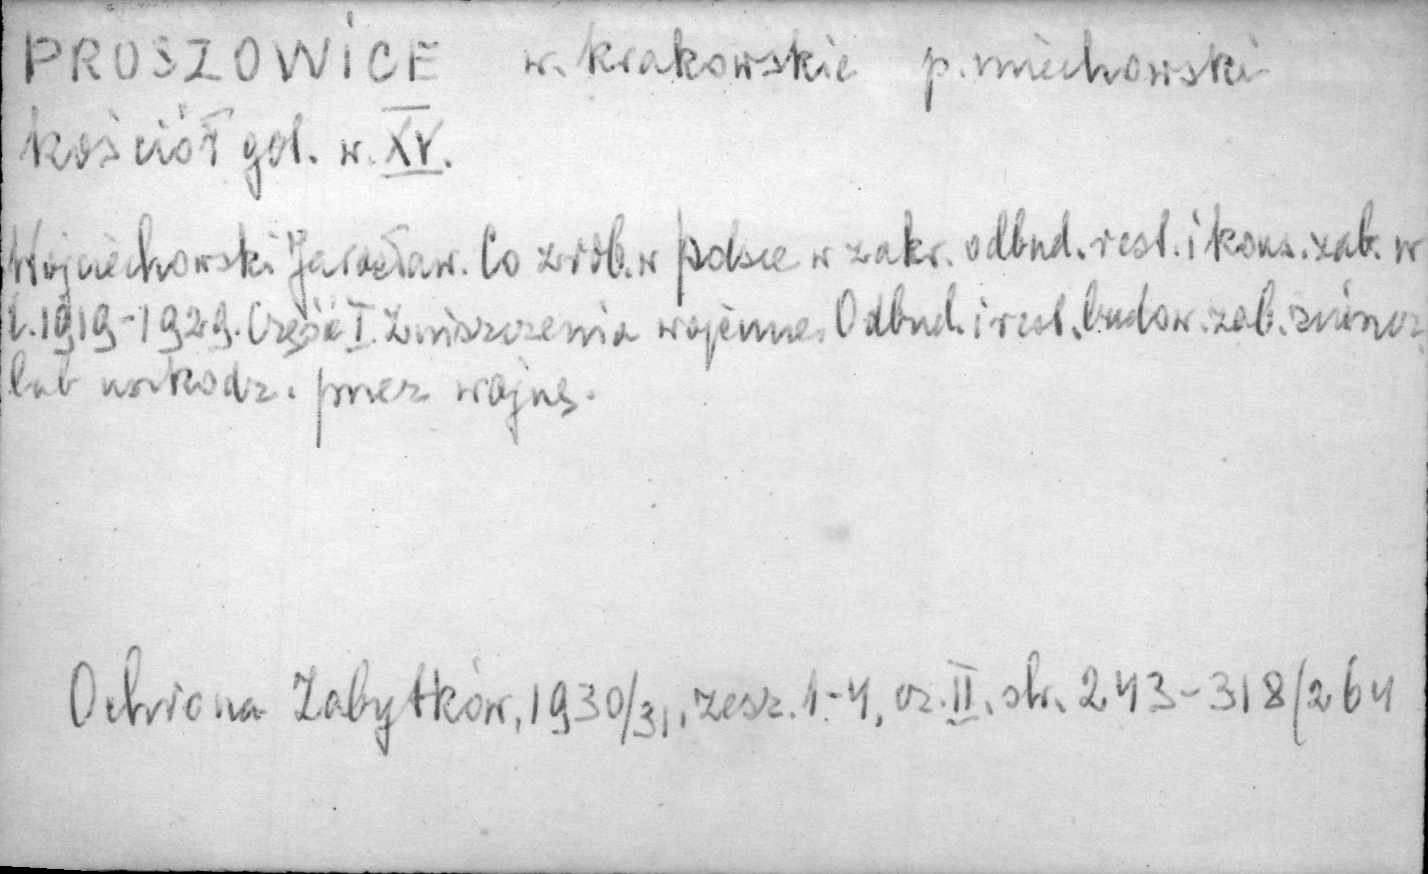 PROSZOWICE w. krakowskie p. miechowski
kościół got. w. XV.
Wojciechowski Jarosław. Co zrob. w Polsce w zakr. odbud. rest. i kons. zab. w
l. 1919-1929. Część I. Zniszczenia wojenne. Odbud. i rest. budow. zab. zniszcz.
lub uszkodz. przez wojnę.
Ochrona Zabytków, 1930/31, zesz. 1-4, cz. II, str. 243-318/264